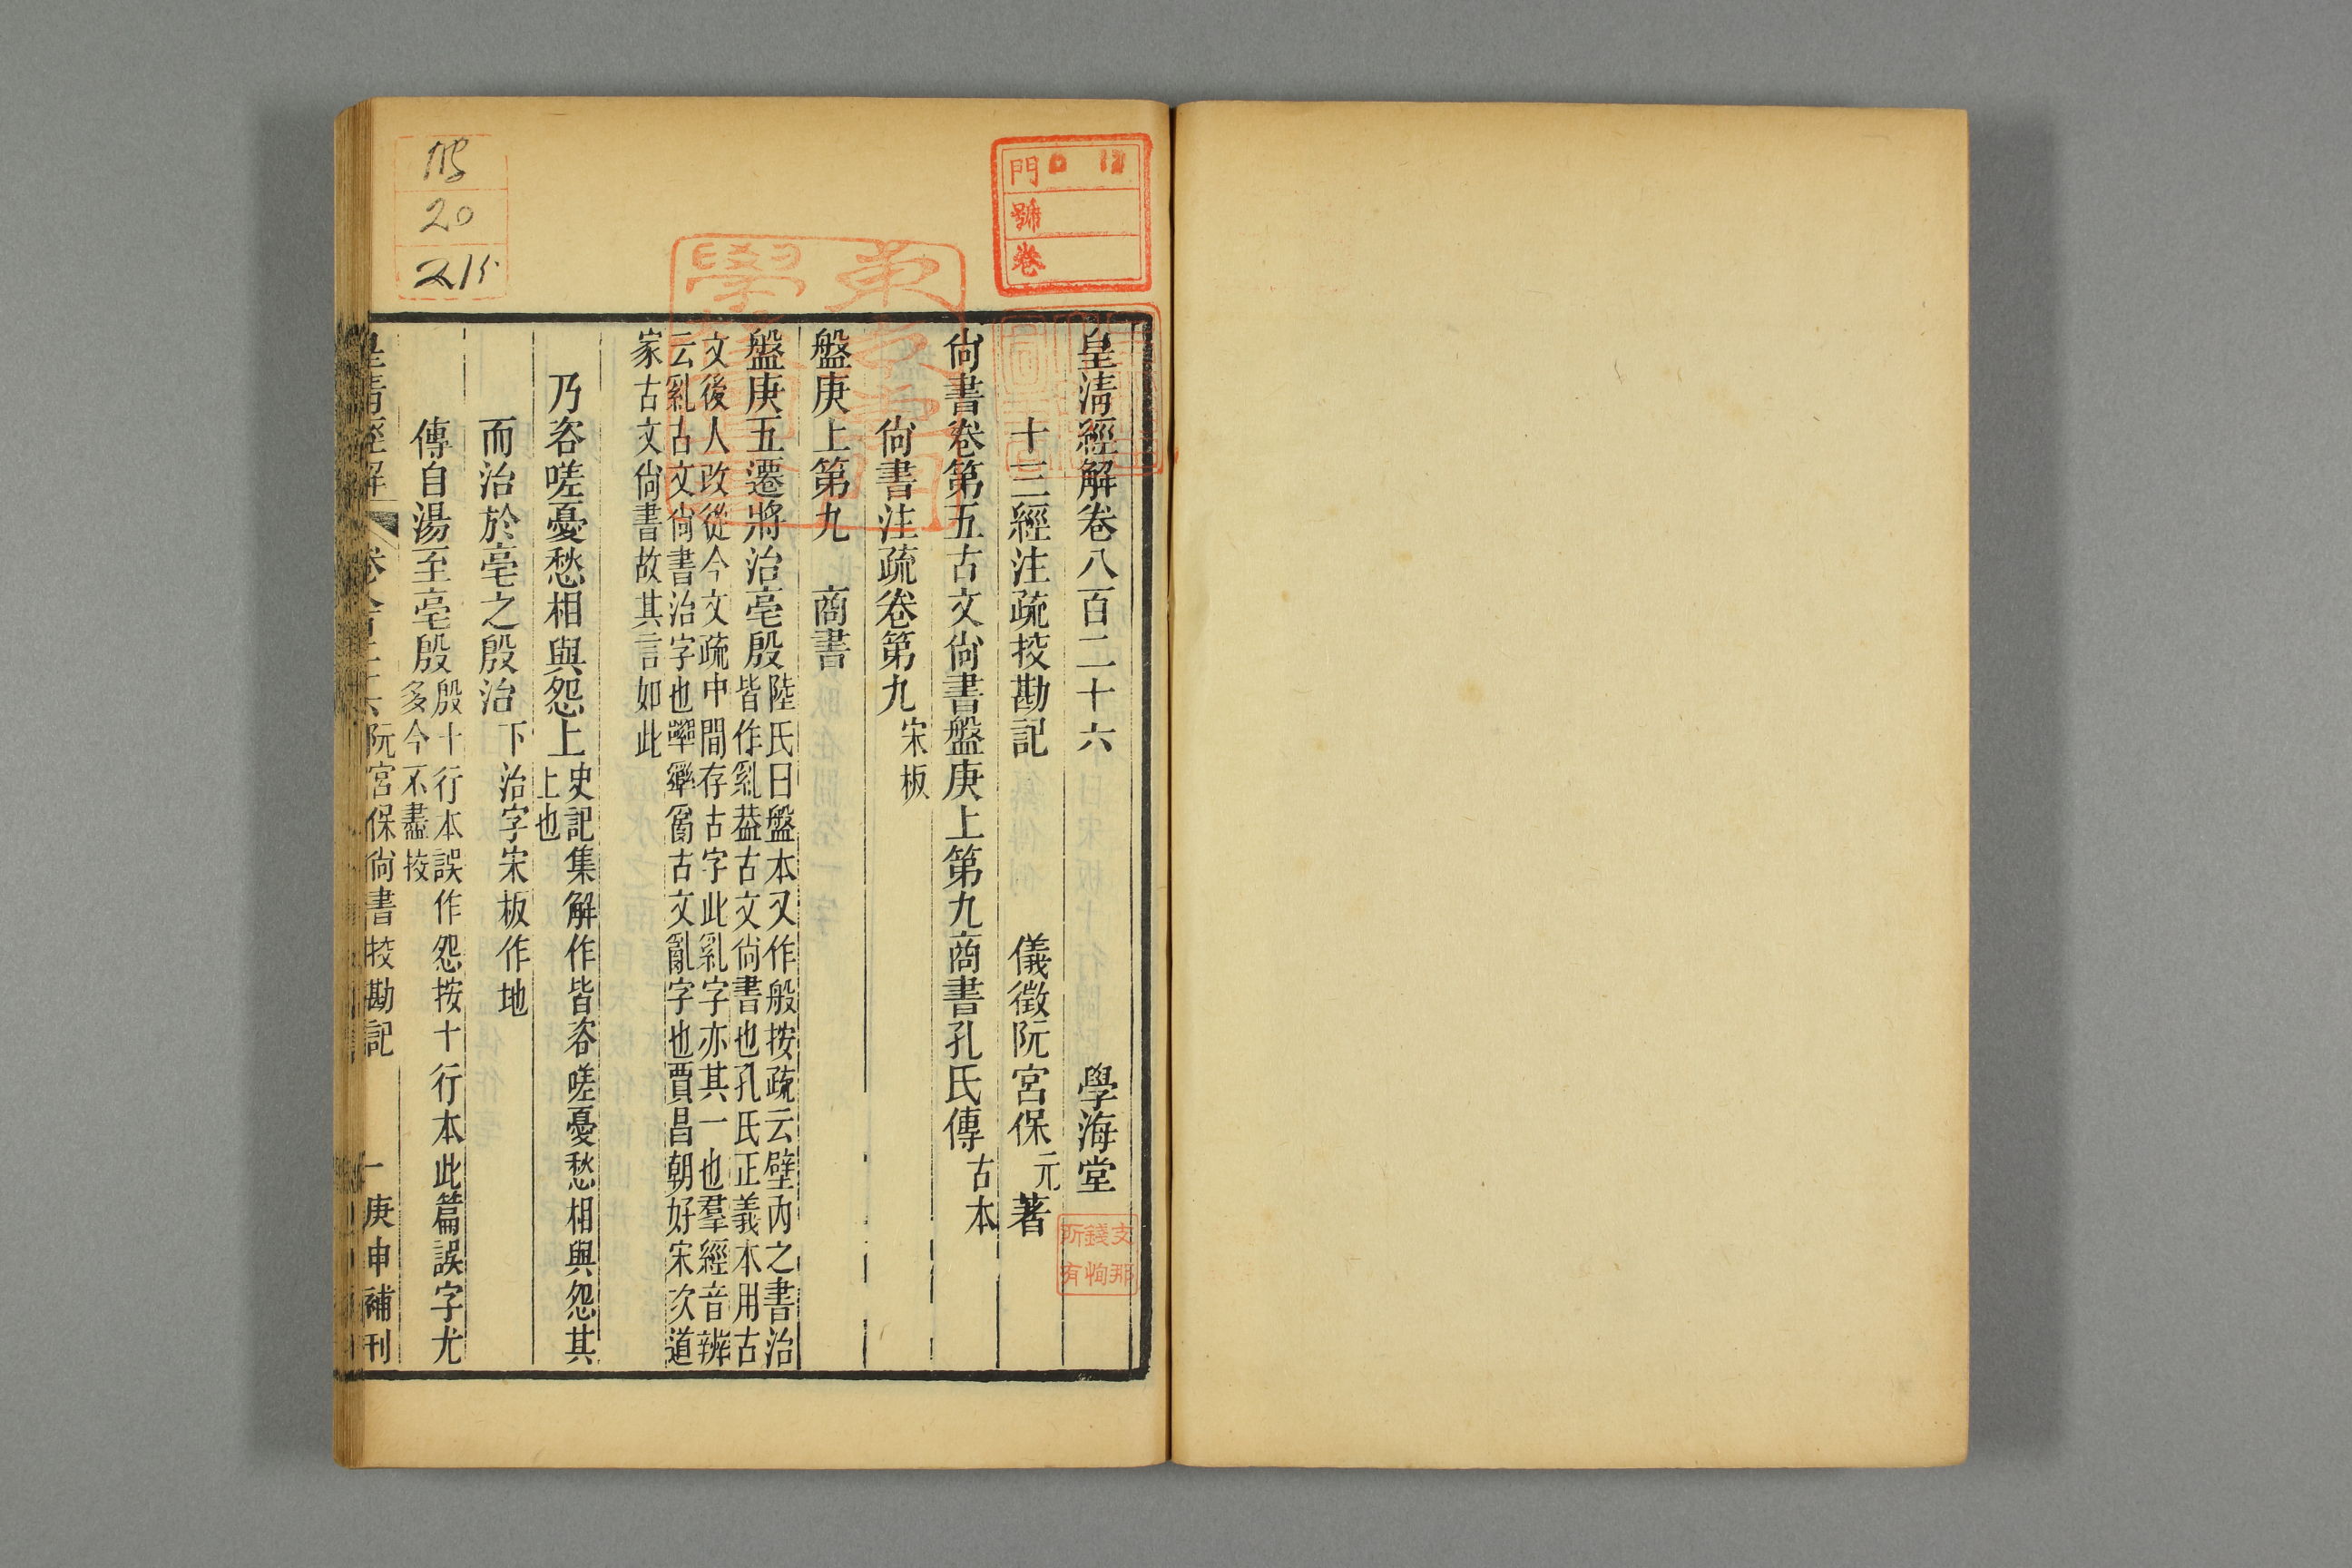 皇清經解卷八百二十六 學海堂
十三經注疏挍勘記 儀徵阮宮保元著
尙書卷第五古文尙書盤庚上第九商書孔氏傳古本
尙書注疏卷第九宋板
盤庚上第九 商書
盤庚五遷將治亳殷
陸氏曰盤本又作般按疏云壁內之書治
皆作亂葢古文尙書也孔氏正義本用古
文後人改從今文疏中間存古字此亂字亦其一也羣經音辨
云亂古文尙書治字也
爲古文亂字也賈昌朝好宋次道
家古文尙書故其言如此
乃咨嗟憂愁相與怨上
史記集解作皆咨嗟憂愁相與怨其
上也
而治於亳之殷治
下治字宋板作地
傳自湯至亳殷
殷十行本誤作怨按十行本此篇誤字尤
多今不盡挍
皇清經解 卷八百二十六 阮宮保尙書挍勘記 一 庚申補刊
門
號
卷
支那
錢恂
所有
20
215